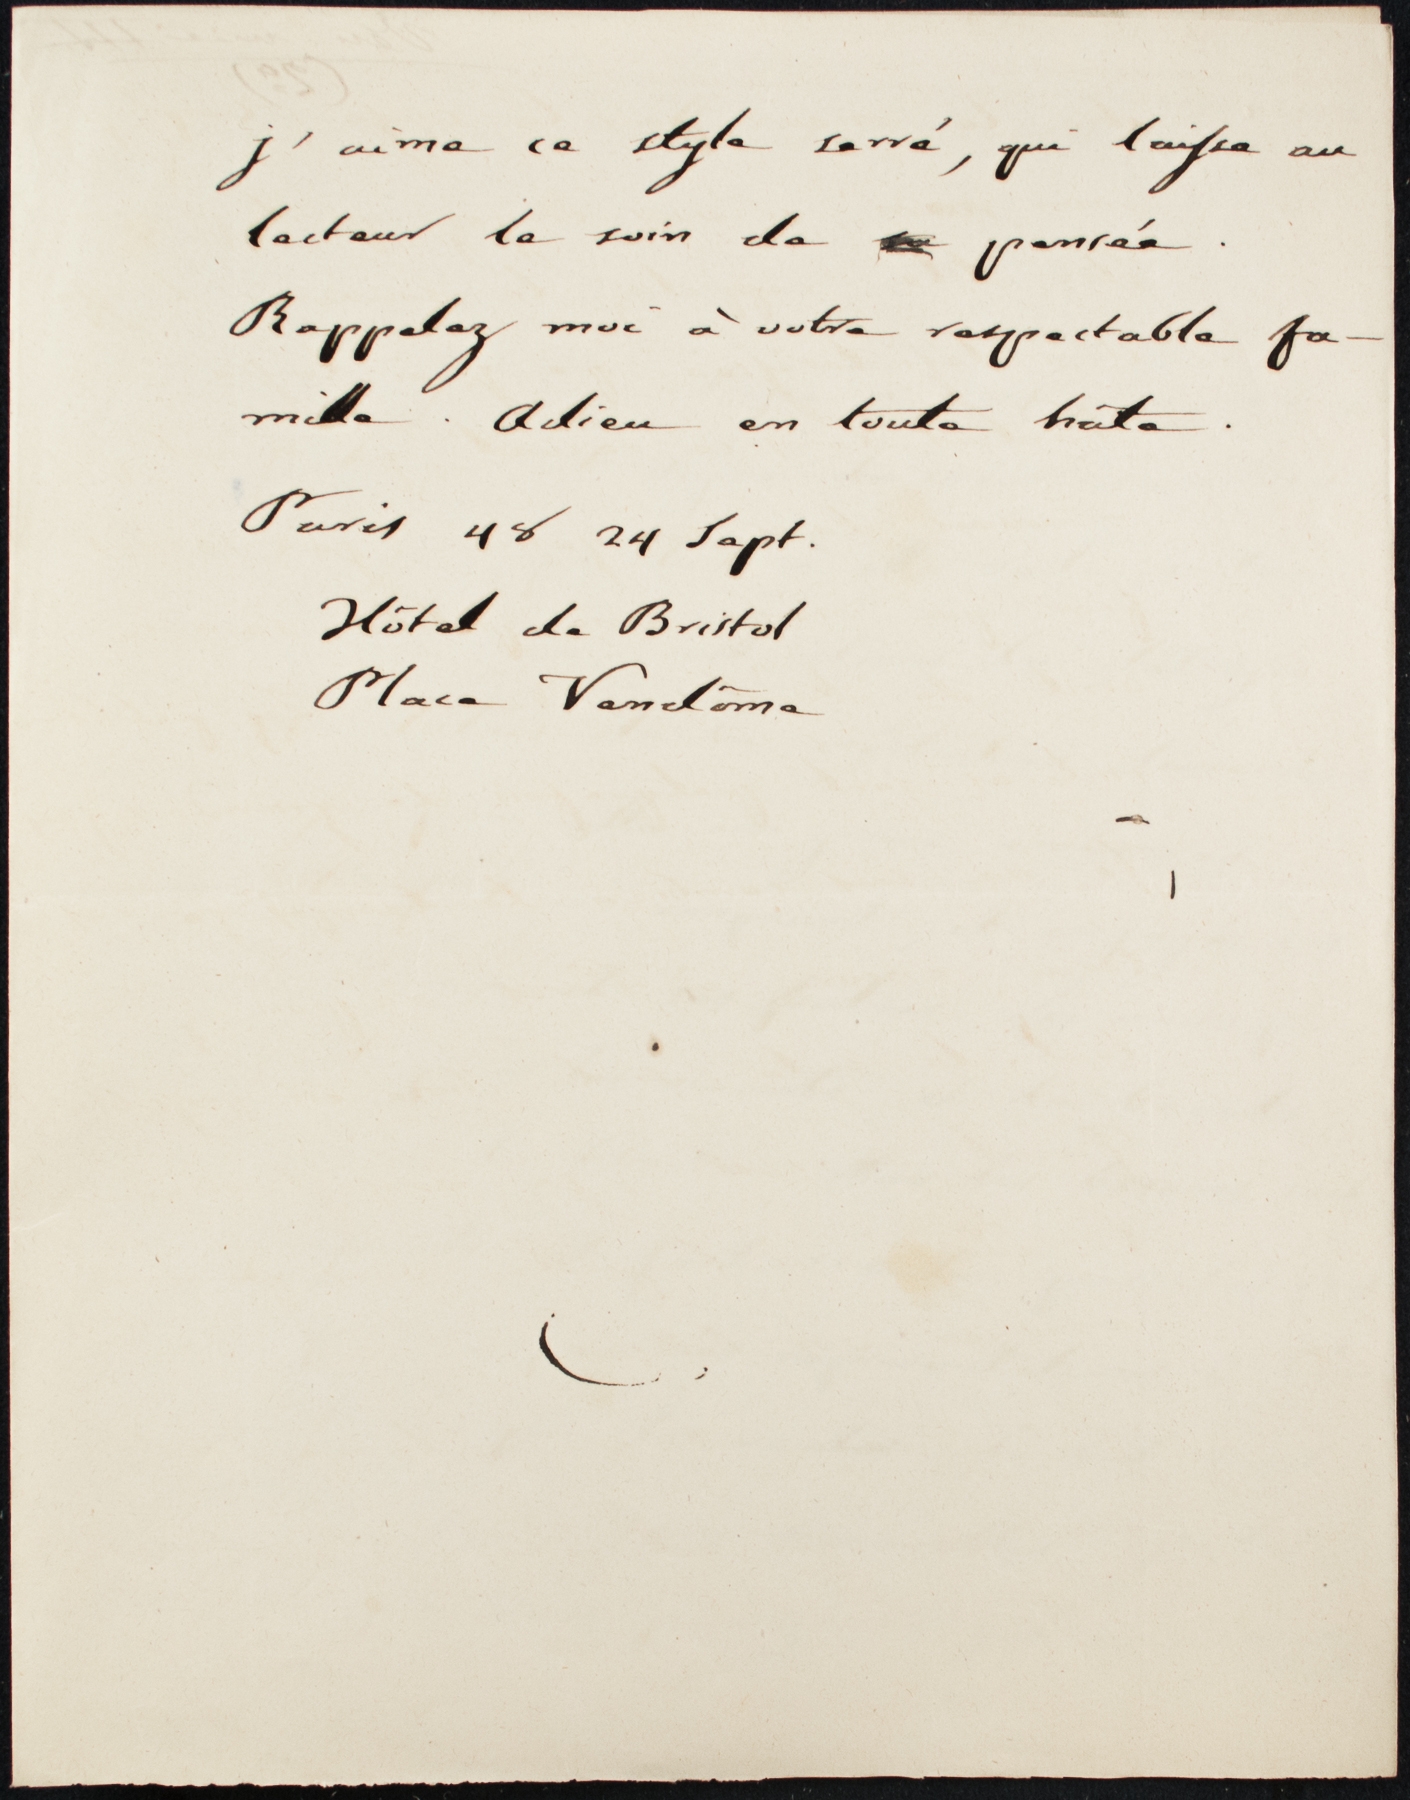 j'aime ce style serré, qui laisse au
lecteur le soin de pensée.
Rappelez moi à votre respectable fa-
mille. Adieu en toute hâte.
Paris 48 24 Sept.
Hôtel de Bristol
Place Vendôme